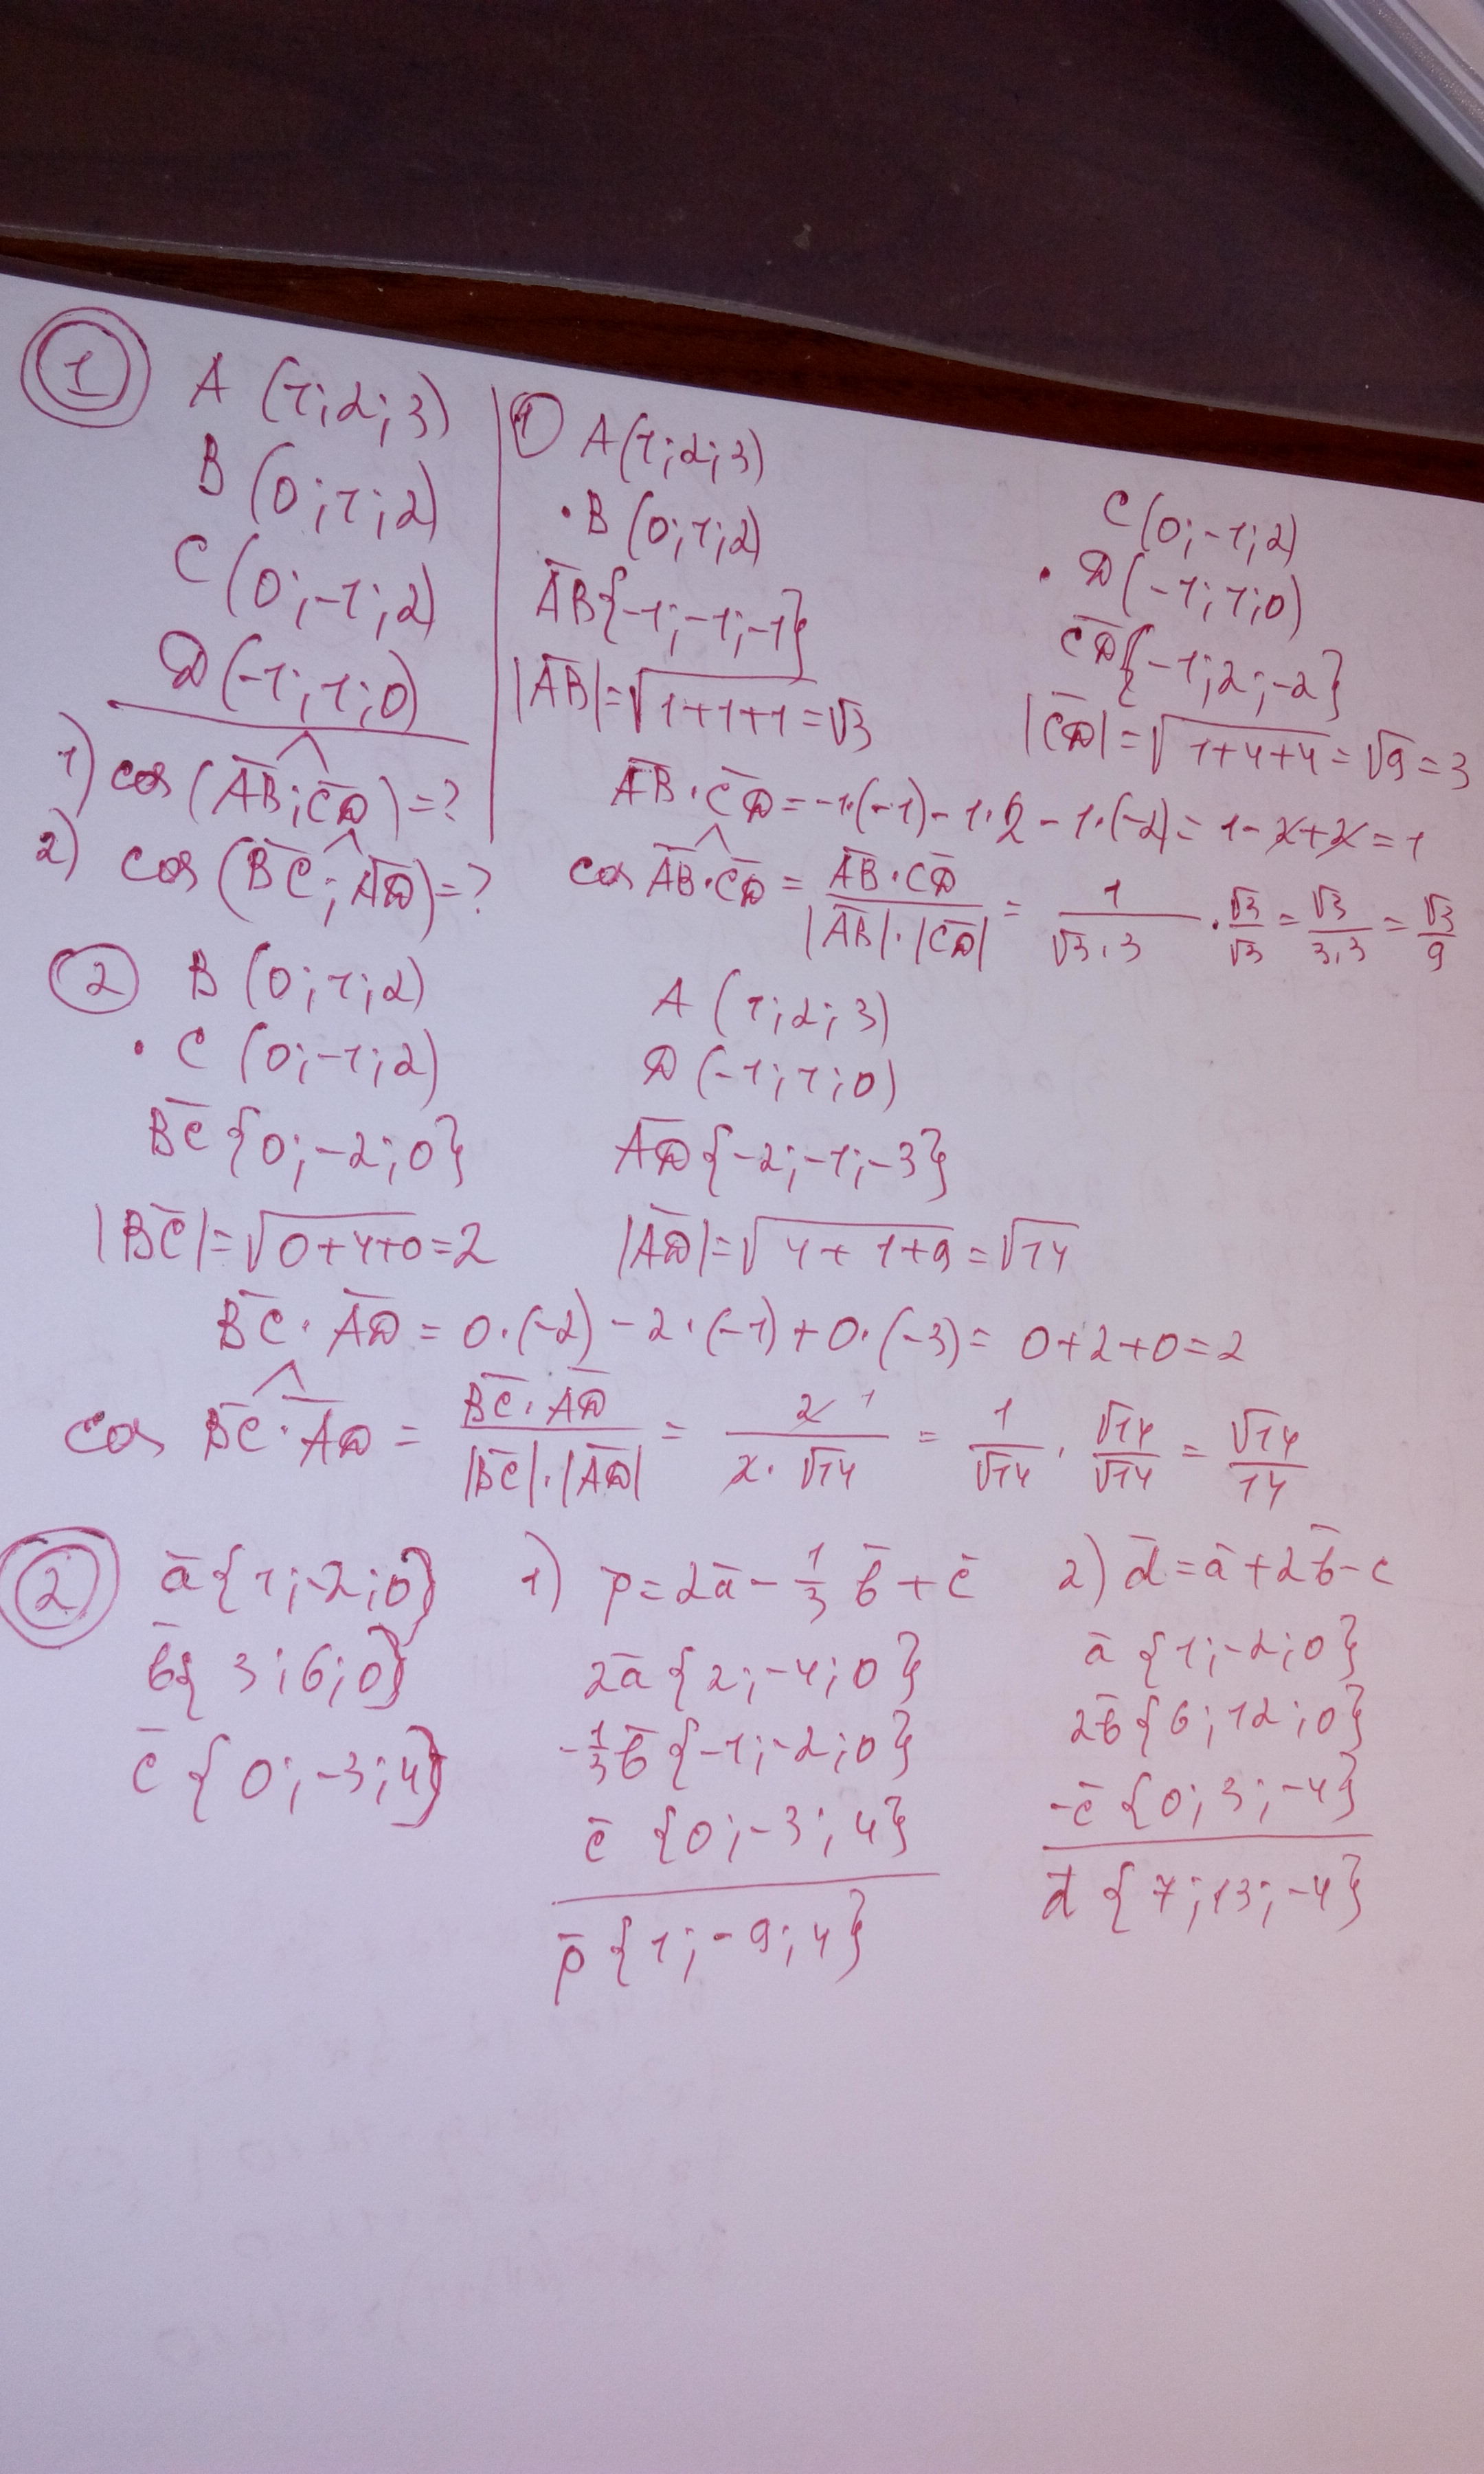 1
A (1; 2; 3)
B (0; 1; 2)
C (0; -1; 2)
D (-1; 1; 0)
1) cos (AB̅; CD̅) = ?
2) cos (BC̅; AD̅) = ?
1 A (1; 2; 3)
· B (0; 1; 2)
AB̅ {-1; -1; -1}
|AB̅| = √(1+1+1) = √3
C (0; -1; 2)
· D (-1; 1; 0)
CD̅ {-1; 2; -2}
|CD̅| = √(1+4+4) = √9 = 3
AB̅ · CD̅ = -1·(-1) - 1·2 - 1·(-2) = 1 - 2 + 2 = 1
cos AB̅·CD̅ = AB̅·CD̅ / |AB̅|·|CD̅| = 1 / √3·3 · √3/√3 = √3 / 3·3 = √3/9
2 B (0; 1; 2)
· C (0; -1; 2)
BC̅ {0; -2; 0}
|BC̅| = √(0+4+0) = 2
A (1; 2; 3)
D (-1; 1; 0)
AD̅ {-2; -1; -3}
|AD̅| = √(4+1+9) = √14
BC̅ · AD̅ = 0·(-2) - 2·(-1) + 0·(-3) = 0+2+0 = 2
cos BC̅·AD̅ = BC̅·AD̅ / |BC̅|·|AD̅| = 2 1 / 2·√14 = 1/√14 · √14/√14 = √14/14
2
a̅ {1; -2; 0}
b̅ {3; 6; 0}
c̅ {0; -3; 4}
1) p = 2a̅ - 1/3 b̅ + c̅
2a̅ {2; -4; 0}
-1/3 b̅ {-1; -2; 0}
c̅ {0; -3; 4}
p̅ {1; -9; 4}
2) d̅ = a̅ + 2b̅ - c
a̅ {1; -2; 0}
2b̅ {6; 12; 0}
-c̅ {0; 3; -4}
d̅ {7; 13; -4}